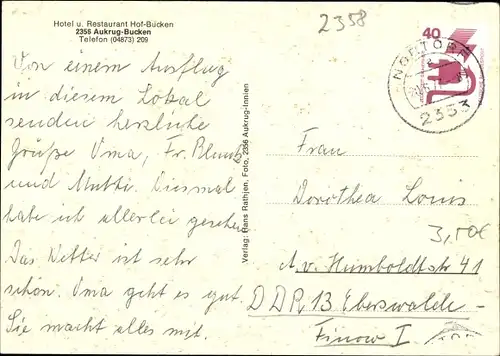 Hotel u. Restaurant Hof-Bucken
2356 Aukrug-Bucken
Telefon (04873) 209
2358
40
NORTORF
2353
Von einem Ausflug
in diesem Lokal
senden herzliche
Grüße Oma, Fr. Blum
und Mutti. Diesmal
habe ich allerlei gesehen
Das Wetter ist sehr
schön. Oma geht es gut.
Sie macht alles mit.
Verlag: Hans Rathjen, Foto, 2356 Aukrug-Innien
Frau
Dorothea Louis
3,50€
A. v. Humboldtstr 41
DDR 13 Eberswalde-
Finow I